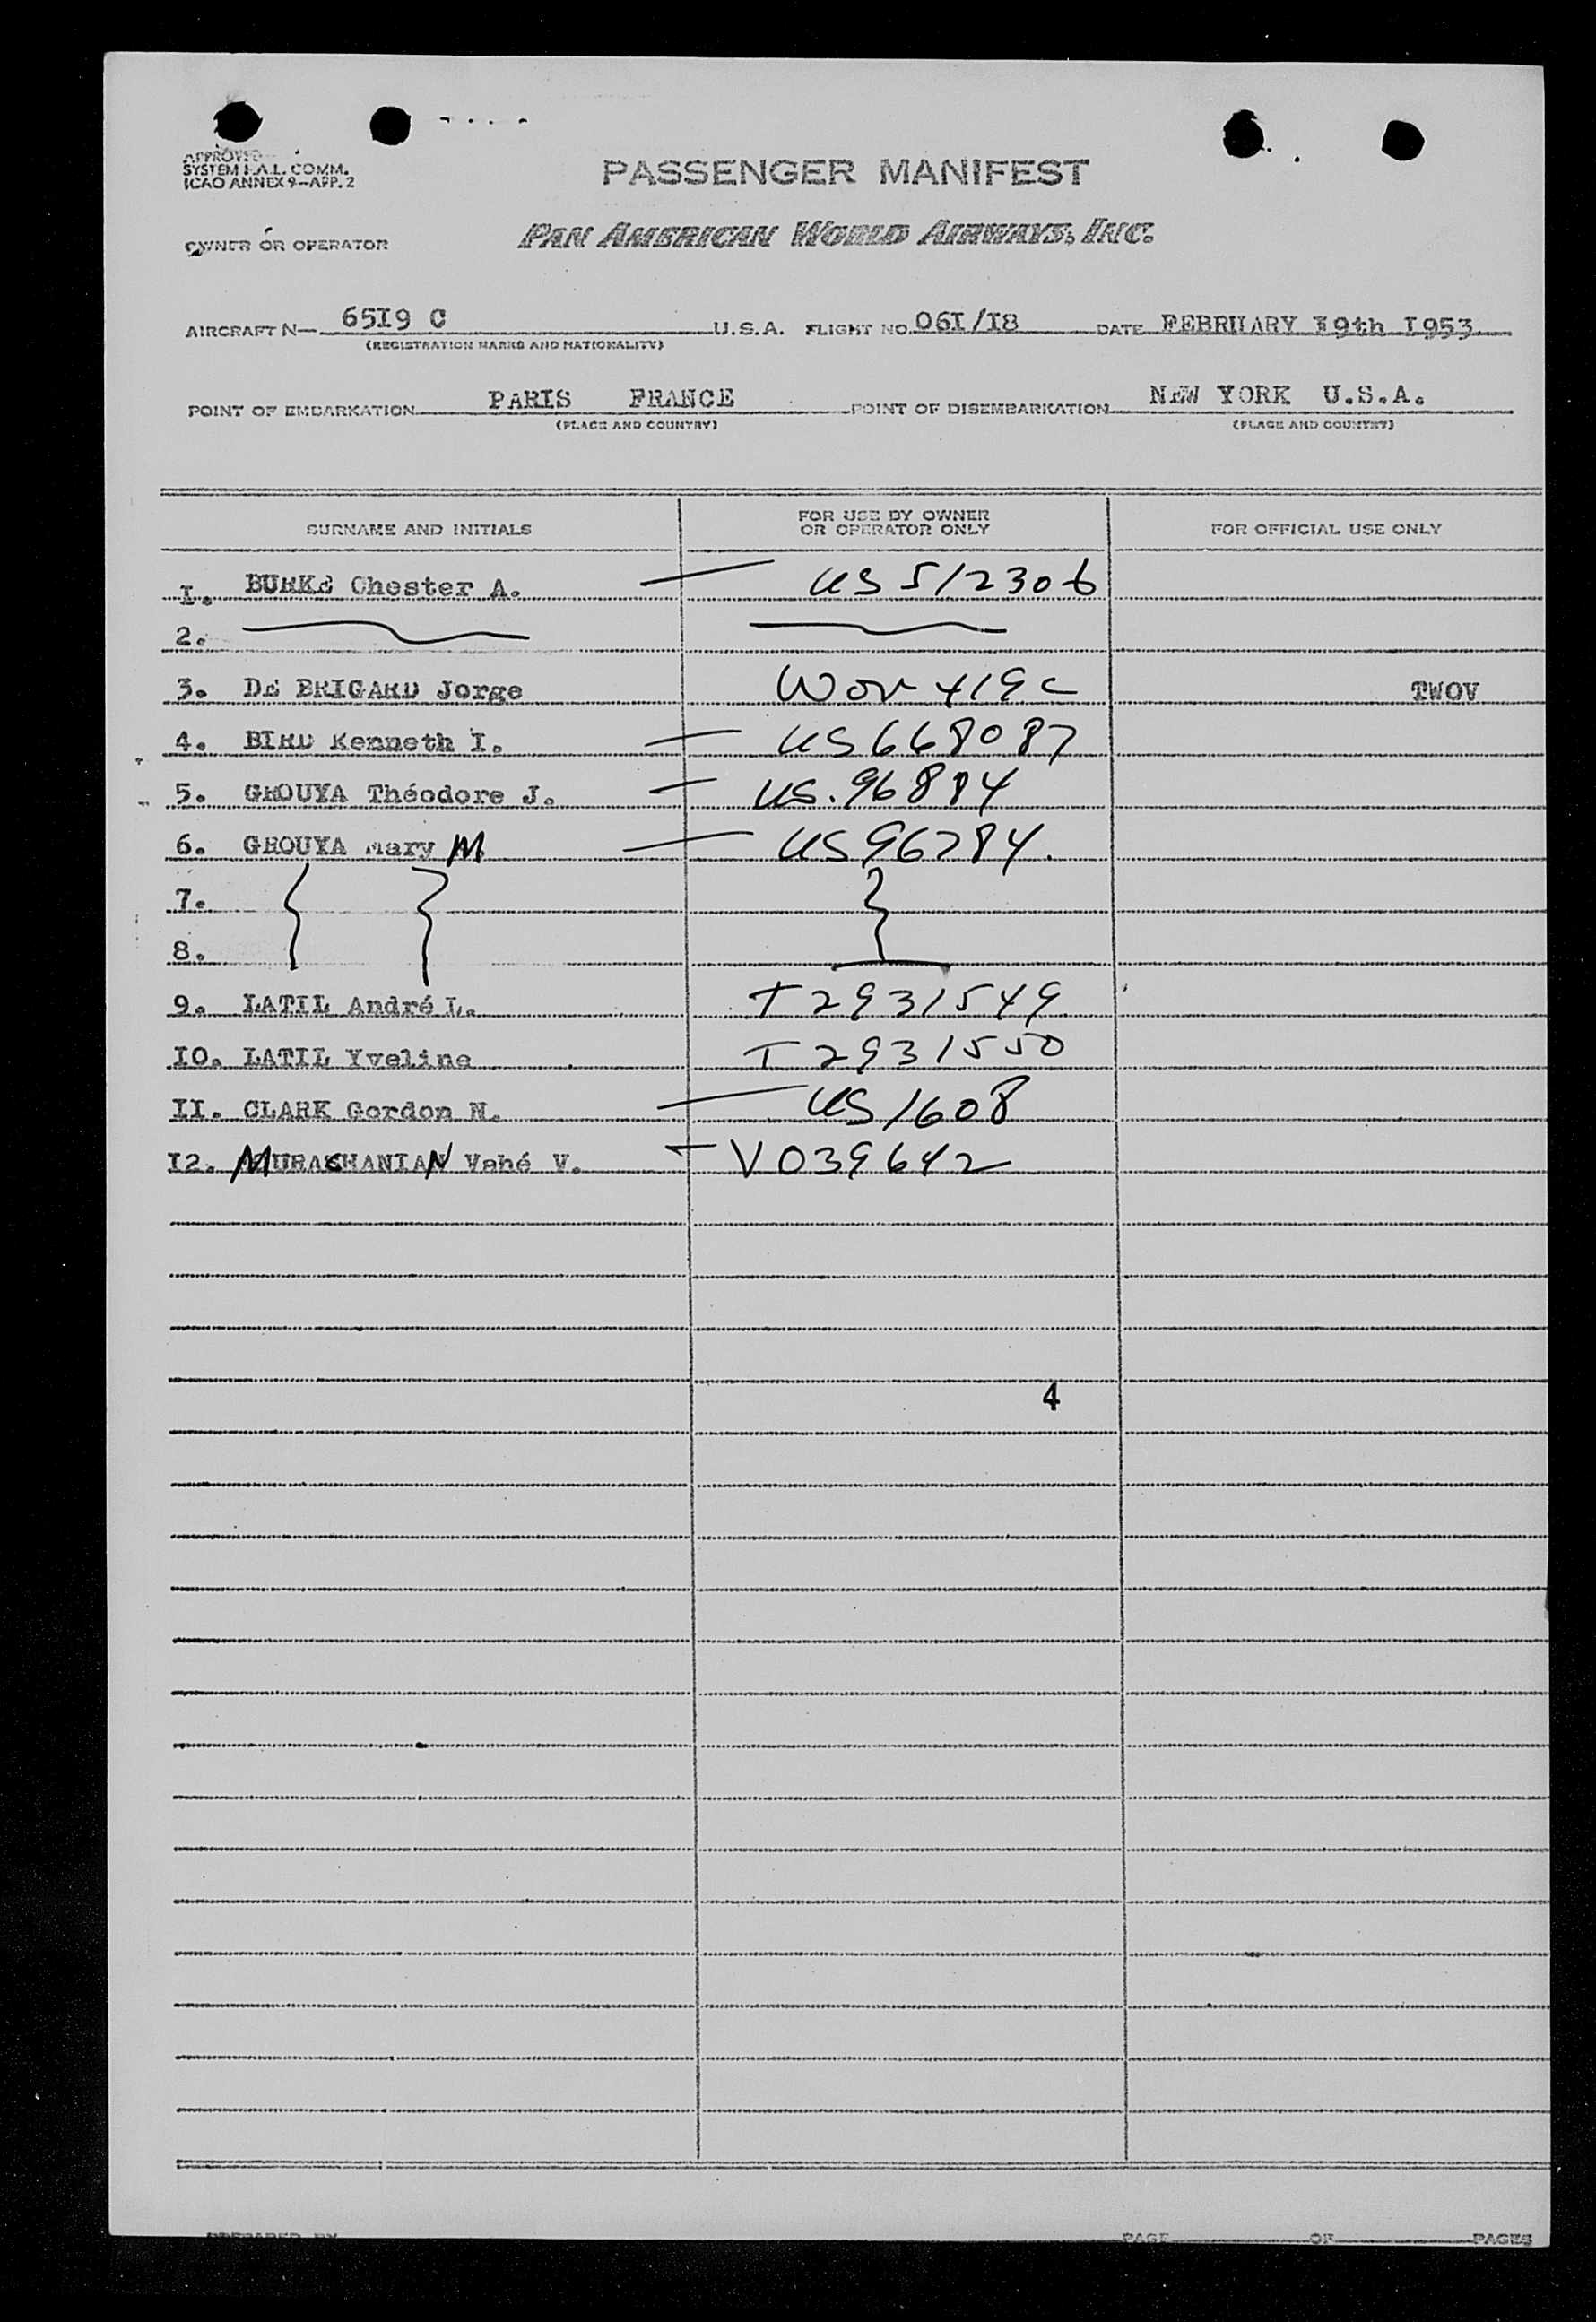 APPROVED
SYSTEM F.A.L. COMM.
ICAO ANNEX 9-APP. 2
PASSENGER MANIFEST
OWNER OR OPERATOR PAN AMERICAN WORLD AIRWAYS, INC.
AIRCRAFT N— 65I9 C U.S.A. FLIGHT NO. 06I/I8 DATE FEBRUARY I9th I953
(REGISTRATION MARKS AND NATIONALITY)
POINT OF EMBARKATION PARIS FRANCE POINT OF DISEMBARKATION NEW YORK U.S.A.
(PLACE AND COUNTRY) (PLACE AND COUNTRY)
SURNAME AND INITIALS FOR USE BY OWNER OR OPERATOR ONLY FOR OFFICIAL USE ONLY
I. BURKE Chester A. US 512306
2.
3. DE BRIGARD Jorge TWOV
4. BIRD Kenneth I. US 668087
5. GROUYA Théodore J. US. 96884
6. GROUYA Mary M US 96784.
7.
8.
9. LATIL André L. T 2931549
IO. LATIL Yveline T 2931550
II. CLARK Gordon N. US 1608
I2. MURACHANIAN Vahé V. V039642
4
PREPARED BY PAGE OF PAGES